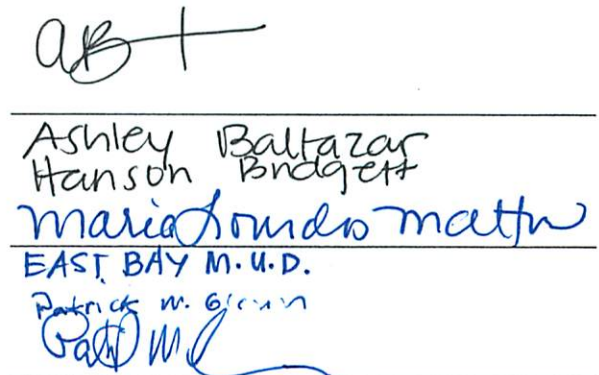 Ashley Baltazar
Hanson Bridgett
Maria Lourdes Matthew
EAST BAY M.U.D.
Patrick M.